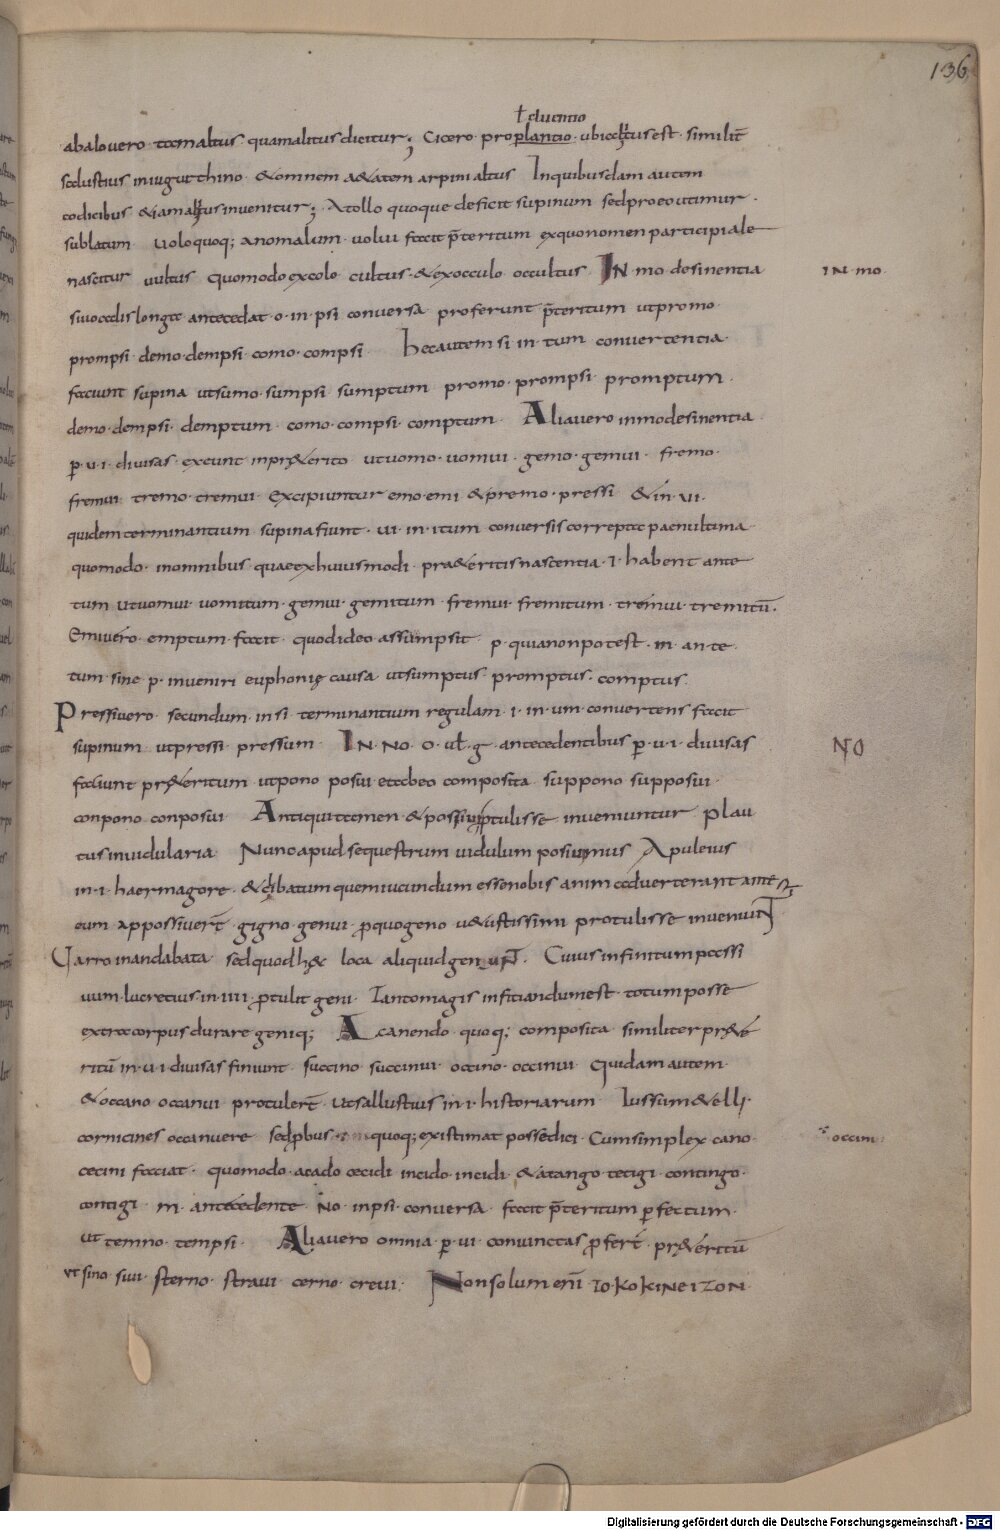 136
ł duentio
abalo uero tam altus quam alitus dicitur; Cicero pro plantio · ubi altus est · similit̄
salustius in iugurthino · & omnem a&atem arpini altus In quibusdam autem
codicibus & iam alitus inuenitur; Attollo quoque deficit supinum sed pro eo utimur ·
sublatum uolo quoq; anomalum · uolui facit p̄teritum ex quo nomen participiale
nascitur uultus quomodo excolo cultus · & exocculo occultus IN mo desinentia
IN · mo
siuocalis longa antecedat o · in · psi conuersa proferunt p̄teritum ut promo ·
prompsi · demo · dempsi · como · compsi hec autem si in · tum conuertentia ·
faciunt supina ut sumo · sumpsi sumptum promo · prompsi · promptum ·
demo · dempsi · demptum · como · compsi · comptum Alia uero in mo desinentia
p̱ · u · i · diuisas · exeunt in pr&erito ut uomo · uomui · gemo · gemui · fremo ·
fremui tremo · tremui Excipiuntur emo · emi & premo · pressi & in · ui ·
quidem terminantium supina fiunt · ui · in · itum conuersis correpta paenultima ·
quomodo · in omnibus quae ex huiusmodi · pra&eritis nascentia · I · habent ante
tum ut uomui uomitum · gemui · gemitum · fremui · fremitum · tremui · tremitū ·
Emi uero · emptum · facit · quod ideo assumpsit p · quia non potest · in · ante ·
tum · sine · p · inueniri euphonię causa ut sumptus · promptus · comptus ·
Pressi uero secundum · in si terminantium regulam · i · in · um · conuertens facit
supinum ut pressi · pressum IN · NO · o · uł · g · antecedentibus p̱ · u · i · diuisas
NO
faciunt pr&eritum ut pono posui et ab eo composita suppono supposui ·
conpono conposui Antiqui tamen & posiui protulisse inueniuntur Plau
tus in uidularia Nunc apud sequestrum uidulum posiuimus Apuleius
in · i · haermagore · & cibatum quem iucundum esse nobis animaduerterant ante
eum apposiuer̄t gigno genui p̱quo geno u&ustissimi protulisse inueniunt
Varro in andabata sed quod h&c loca aliquid genunt · Cuius infinitum passi
uum · lucretius · in · iiii · p̱tulit geni · Tanto magis infitiandum est totum posse
extra corpus durare geniq; A canendo quoq; composita similiter pr&e
ritū in · u · i · diuisas finiunt · succino succinui occino · occinui Quidam autem ·
& occano occanui protuler̄t ut sallustius in · i · historiarum Iussu m&elli ·
cornicines occanuere sed p̱bus quoq; existimat posse dici · Cum simplex cano ·
occinui
cecini faciat · quomodo · acado cecidi incido · incidi · & atango tetigi · contingo ·
contigi m · antecedente NO in psi · conuersa facit p̄teritum p̱fectum ·
ut temno · tempsi · Alia uero omnia · p̱ · ui · coniunctas p̱fer̄t · pr&eritū
ut sino · siui · sterno · straui · cerno · creui · Non solum eni̅ IO · KO KINEIZON ·
Digitalisierung gefördert durch die Deutsche Forschungsgemeinschaft - DFG